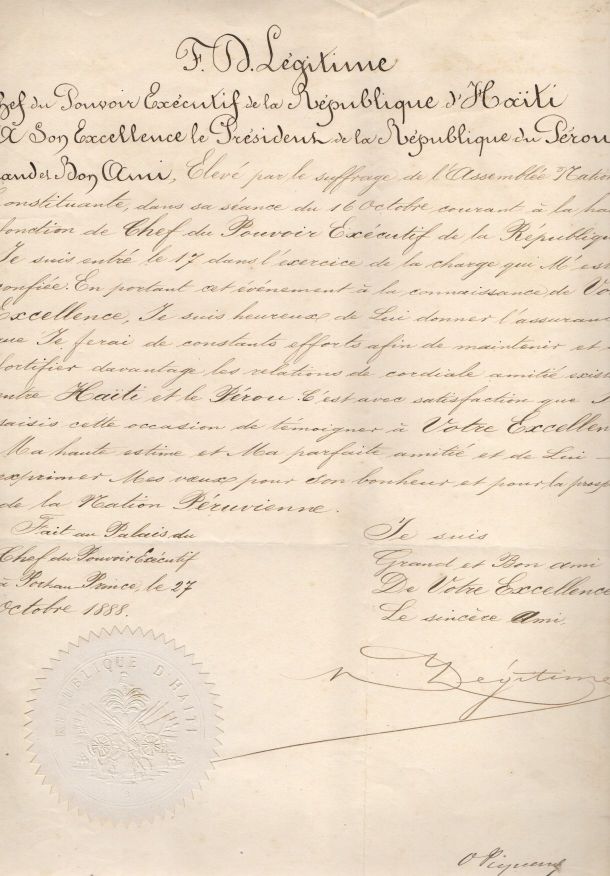 F. D. Légitime
hef du Pouvoir Exécutif de la République d'Haïti
À Son Excellence le Président de la République du Pérou
and et Bon Ami, Élevé par le suffrage de l'Assemblée Nation
Constituante, dans sa séance du 16 Octobre courant à la hau
fonction de Chef du Pouvoir Exécutif de la République
Je suis entré le 17 dans l'exercice de la charge qui M'est
confiée. En portant cet événement à la connaissance de Vo
Excellence, Je suis heureux de Lui donner l'assuran
que Je ferai de constants efforts afin de maintenir et
fortifier davantage les relations de cordiale amitié exist
entre Haïti et le Pérou. C'est avec satisfaction que J
saisis cette occasion de témoigner à Votre Excellen
Ma haute estime et Ma parfaite amitié et de Lui
exprimer Mes vœux pour Son bonheur et pour la prosp
de la Nation Péruvienne.
Fait au Palais du
Chef du Pouvoir Exécutif
à Port au Prince, le 27
Octobre 1888.
Je suis
Grand et Bon ami
De Votre Excellence
Le sincère Ami.
Légitime
RÉPUBLIQUE D'HAITI